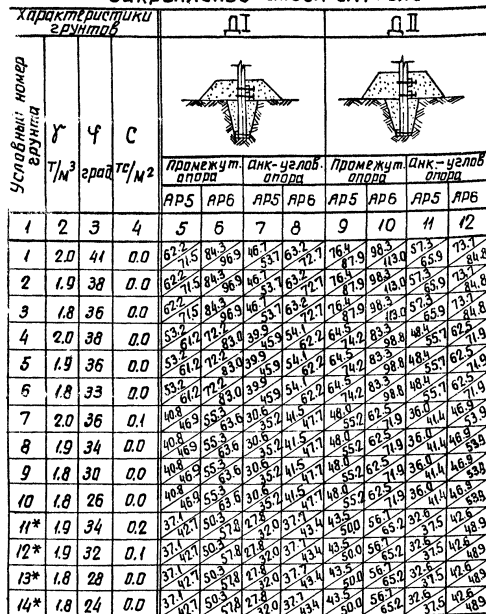 Характеристики грунтов ДI ДII
Условный номер грунта γ т/м³ φ град С тс/м²
Промежут. опора Анк-углов. опора Промежут. опора Анк.-углов опора
АР5 АР6 АР5 АР6 АР5 АР6 АР5 АР6
1 2 3 4 5 6 7 8 9 10 11 12
1 2.0 41 0.0 62.2 71.5 84.3 96.9 46.7 53.7 63.2 72.7 76.4 87.9 98.3 113.0 57.3 65.9 73.7 84.8
2 1.9 38 0.0 62.2 71.5 84.3 96.9 46.7 53.7 63.2 72.7 76.4 87.9 98.3 113.0 57.3 65.9 73.7 84.8
3 1.8 36 0.0 62.2 71.5 84.3 96.9 46.7 53.7 63.2 72.7 76.4 87.9 98.3 113.0 57.3 65.9 73.7 84.8
4 2.0 38 0.0 53.2 61.2 72.2 83.0 39.9 45.9 54.1 62.2 64.5 74.2 83.3 98.8 48.4 55.7 62.5 71.9
5 1.9 36 0.0 53.2 61.2 72.2 83.0 39.9 45.9 54.1 62.2 64.5 74.2 83.3 98.8 48.4 55.7 62.5 71.9
6 1.8 33 0.0 53.2 61.2 72.2 83.0 39.9 45.9 54.1 62.2 64.5 74.2 83.3 98.8 48.4 55.7 62.5 71.9
7 2.0 36 0.1 40.8 46.9 55.3 63.6 30.6 35.2 41.5 47.7 48.0 55.2 62.5 71.9 36.0 41.4 46.9 53.9
8 1.9 34 0.0 40.8 46.9 55.3 63.6 30.6 35.2 41.5 47.7 48.0 55.2 62.5 71.9 36.0 41.4 46.9 53.9
9 1.8 30 0.0 40.8 46.9 55.3 63.6 30.6 35.2 41.5 47.7 48.0 55.2 62.5 71.9 36.0 41.4 46.9 53.9
10 1.8 26 0.0 40.8 46.9 55.3 63.6 30.6 35.2 41.5 47.7 48.0 55.2 62.5 71.9 36.0 41.4 46.9 53.9
11* 1.9 34 0.2 37.1 42.7 50.3 57.8 27.8 32.0 37.7 43.4 43.5 50.0 56.7 65.2 32.6 37.5 42.6 48.9
12* 1.9 32 0.1 37.1 42.7 50.3 57.8 27.8 32.0 37.7 43.4 43.5 50.0 56.7 65.2 32.6 37.5 42.6 48.9
13* 1.8 28 0.0 37.1 42.7 50.3 57.8 27.8 32.0 37.7 43.4 43.5 50.0 56.7 65.2 32.6 37.5 42.6 48.9
14* 1.8 24 0.0 37.1 42.7 50.3 57.8 27.8 32.0 37.7 43.4 43.5 50.0 56.7 65.2 32.6 37.5 42.6 48.9